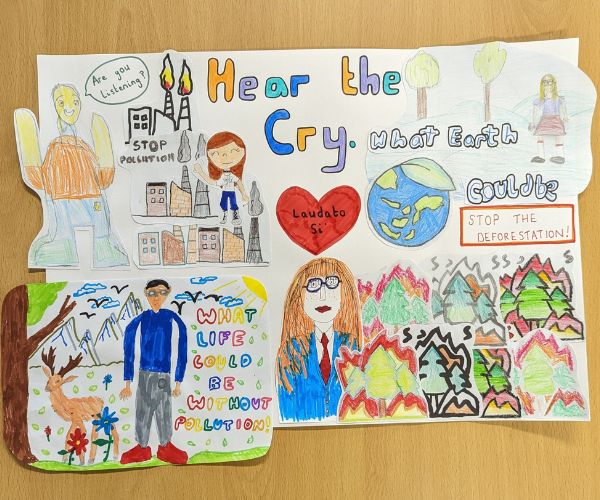 Hear the
Cry.
Are you
listening?
STOP
POLLUTION
What Earth
Could be
STOP THE
DEFORESTATION!
Laudato
Si'
WHAT
LIFE
COULD
BE
WITHOUT
POLLUTION!